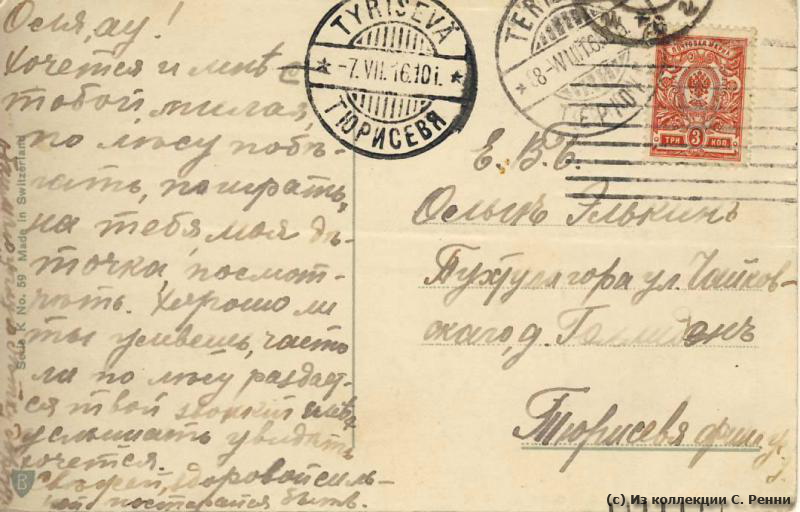 Оля, ау!
Хочется и мнѣ с
тобой, милая,
по лѣсу побѣ-
гать, поиграть,
на тебя, моя дѣ-
точка, посмот-
рѣть. Хорошо ли
ты живешь, часто
ли по лѣсу раздает-
ся твой звонкий смѣх
услышать увидать
хочется.
здоровой силь-
ной постарайся быть.
Serie K No. 59 Made in Switzerland
B
TYRISEVÄ
-7.VII.16.10 i.
ТЮРИСЕВЯ
TERI
8-VII.16
ТЕРІЮ
ПОЧТОВАЯ МАРКА
3
ТРИ КОП.
Е. В. Б.
Ольгѣ Элькинъ
ул. Чайков-
скаго, д.
Тюрисевя
(c) Из коллекции С. Ренни